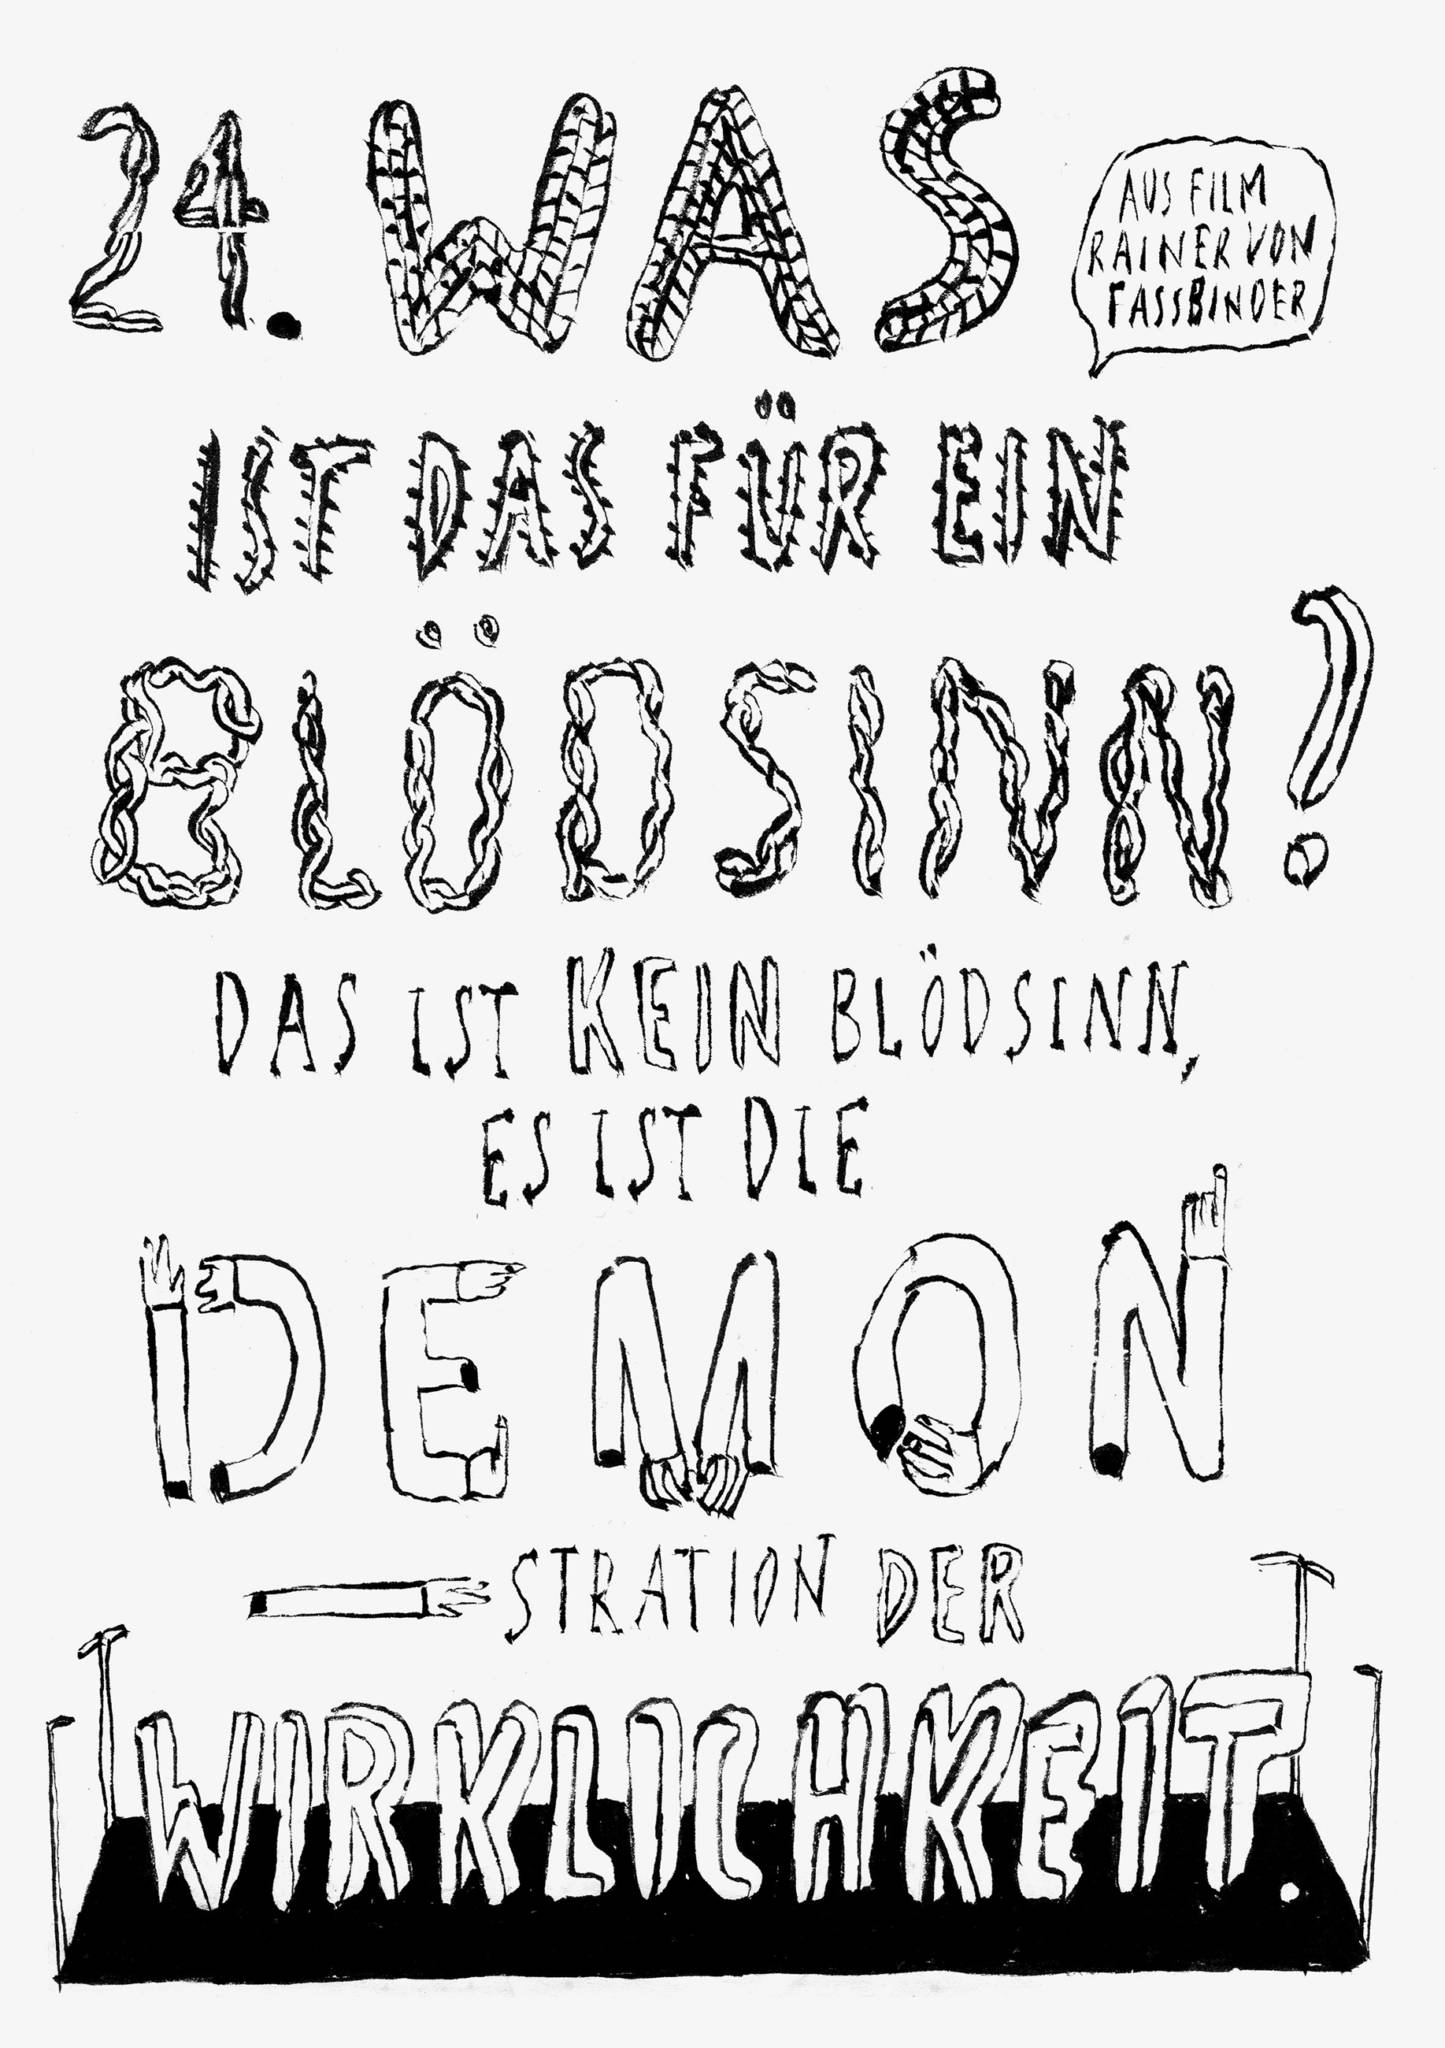 24. WAS
AUS FILM
RAINER VON
FASSBINDER
IST DAS FÜR EIN
BLÖDSINN!
DAS IST KEIN BLÖDSINN,
ES IST DIE
DEMON
STRATION DER
WIRKLICHKEIT.